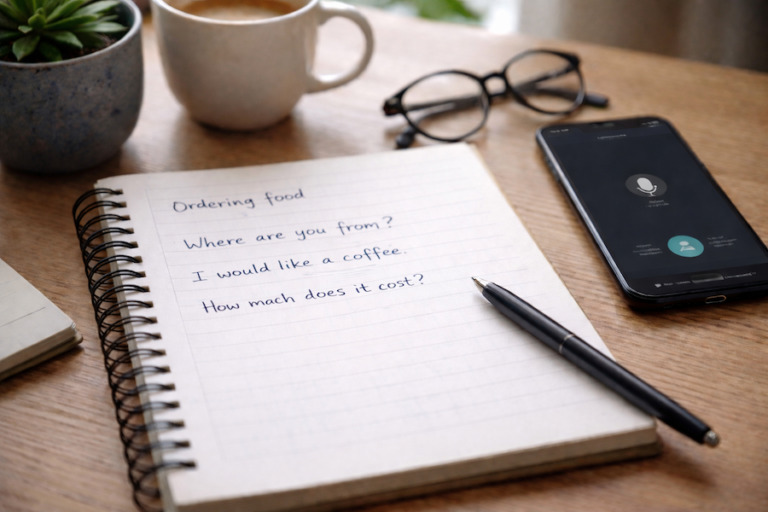 Ordering food
Where are you from?
I would like a coffee.
How mach does it cost?